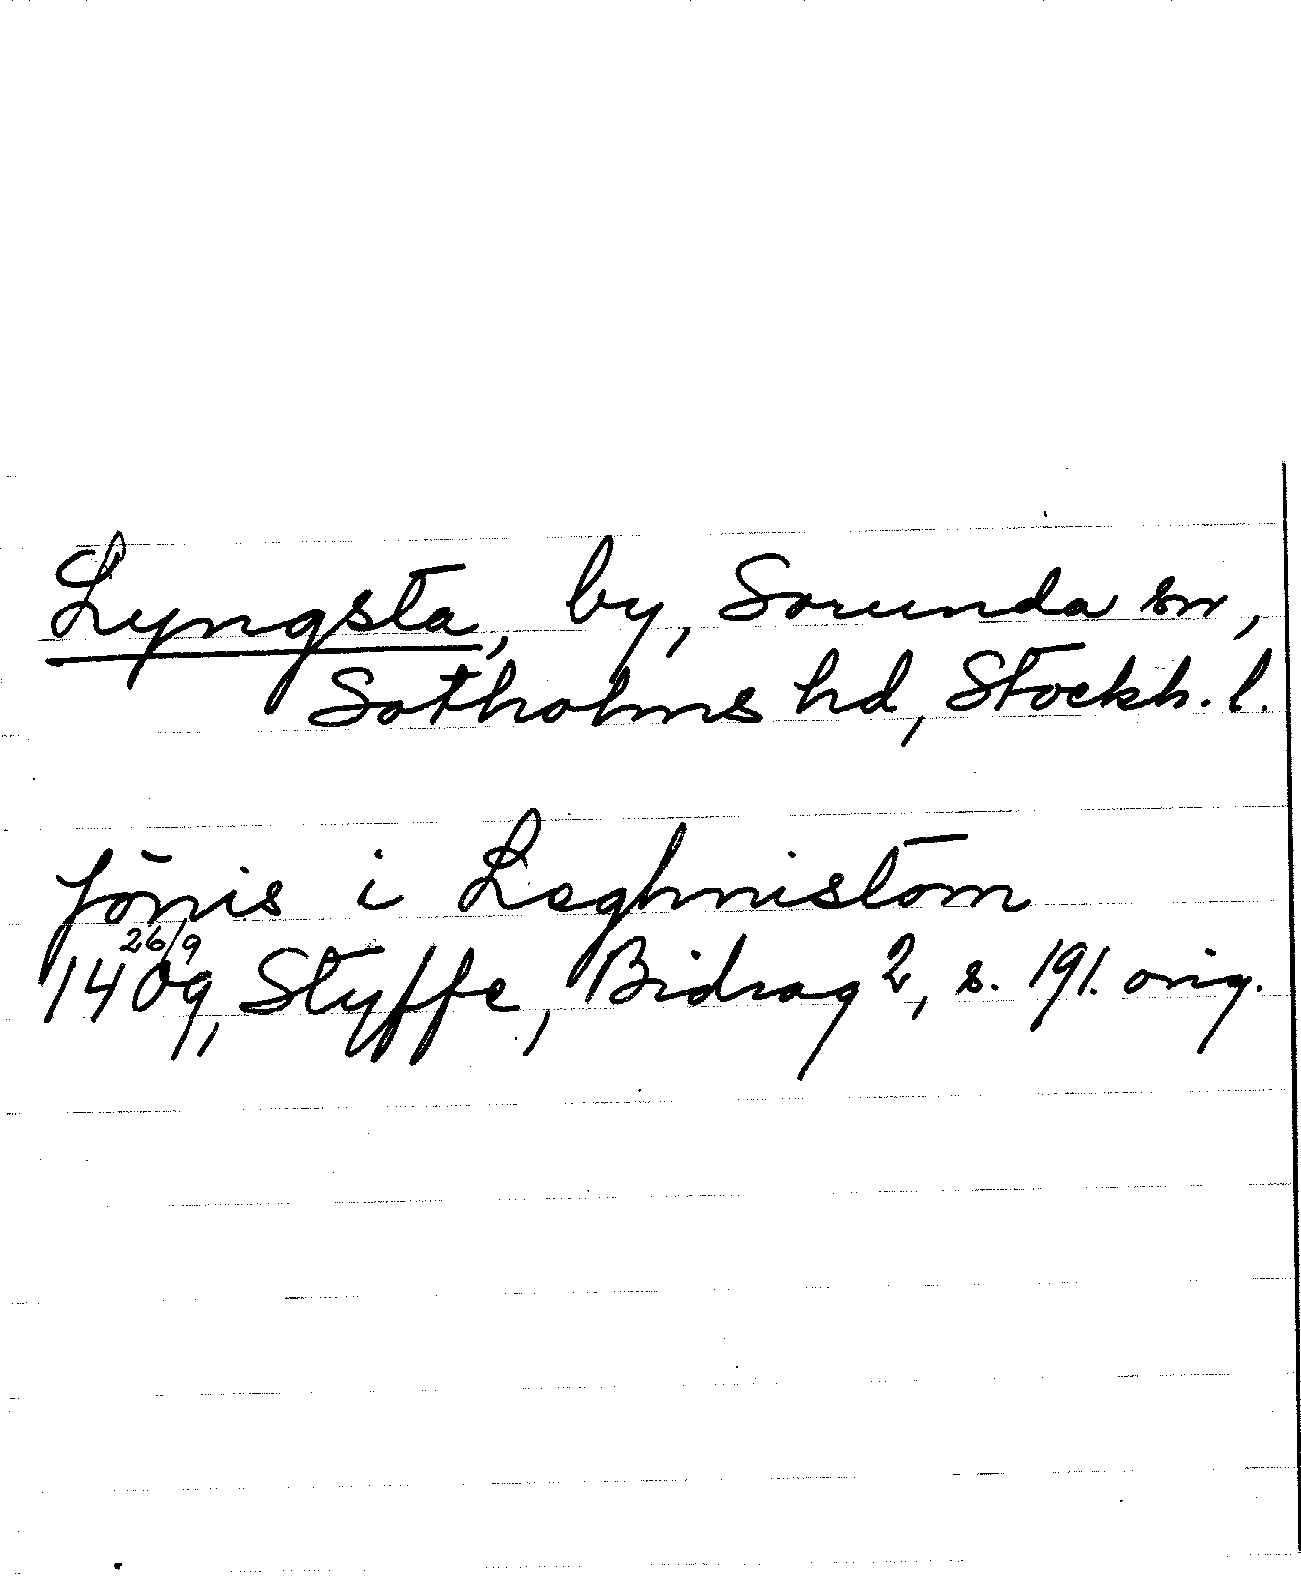 Lyngsta, by, Sorunda sn,
Sotholms hd, Stockh. l.
Jönis i Leghnistom
26/9
1409, Styffe, Bidrag 2, s. 191. orig.